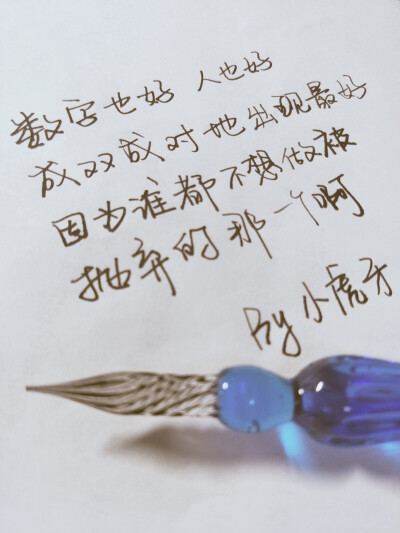 数字也好 人也好
成双成对地出现最好
因为谁都不想做被
抛弃的那一个啊
By 小虎牙